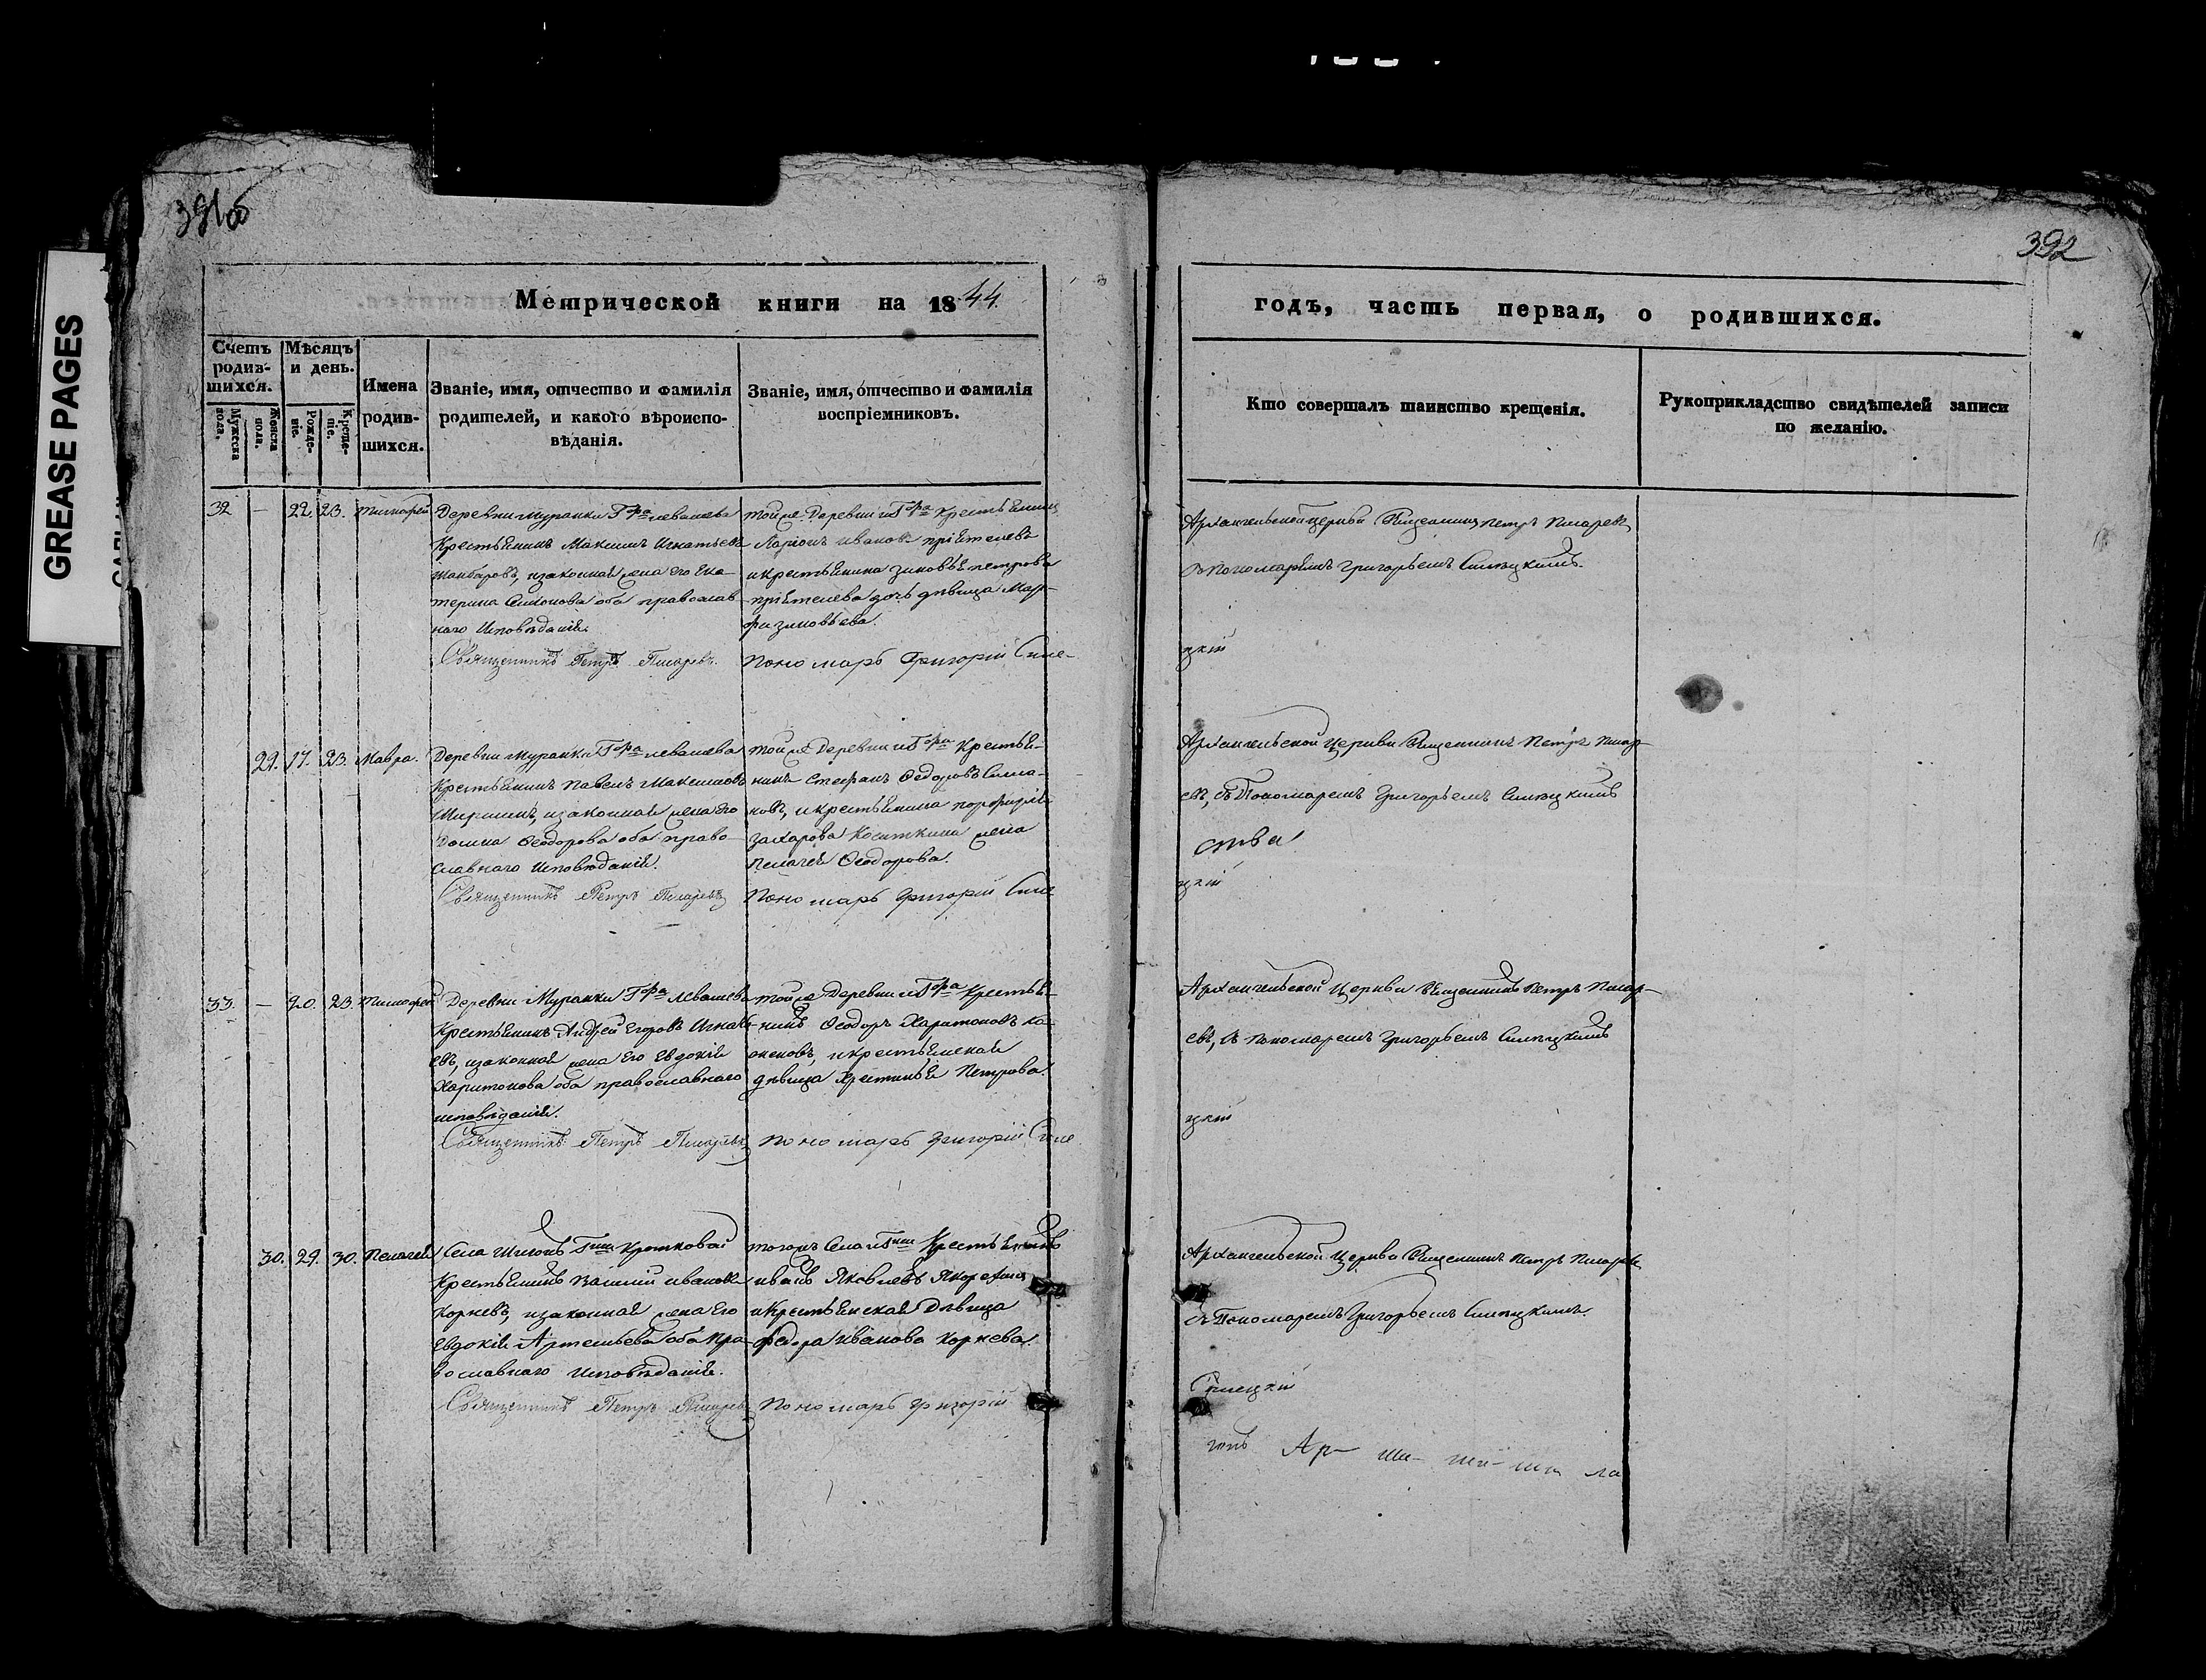 GREASE PAGES
391об
392
Метрической книги на 1844.
годъ, часть первая, о родившихся.
Счетъ родив-шихся.
Мужеска пола.
Женска пола.
Мѣсяцъ и день.
Рожде-ніе.
Креще-ніе.
Имена родив-шихся.
Званіе, имя, отчество и фамилія
родителей, и какого вѣроиспо-
вѣданія.
Званіе, имя, отчество и фамилія
воспріемниковъ.
Кто совершалъ таинство крещенія.
Рукоприкладство свидѣтелей записи
по желанію.
32 — 22. 23. Тимофей
Деревни Муранки Г-ра Левашева
Крестьянинъ Максимъ Игнатьевъ
изаконная жена его Ека-
терина Семионова оба православ
наго Исповѣданія.
Священникъ Петръ Писаревъ.
тойже Деревни и Г-ра Крестьянинъ
Ларіонъ Ивановъ пріятелевъ
икрестьянина Зиновья петрова
пріятелева дочь дѣвица Мар-
фа зиновьева.
Пономарь Григорій Сине-
Архангельской церкви Священникъ петръ Писаревъ
съ Пономаремъ Григорьемъ Синецкимъ.
цкій
29. 17. 23. Мавра.
Деревни Муранки Г-ра Левашева
Крестьянинъ Павелъ Максимовъ
изаконная жена его
Домна Феодорова оба право-
славнаго Исповѣданія.
Священникъ Петръ Писаревъ
тойже Деревни и Г-ра Крестья-
нинъ Стефанъ Федоровъ Сима-
ковъ, икрестьянина порфирія
захарова жена
Пелагея Феодорова.
Пономарь Григорій Сине
Архангельской Церкви Священникъ Петръ Писар-
евъ, съ Пономаремъ Григорьемъ Синецкимъ
ства
цкій
33. — 20. 23. Тимофей
Деревни Муранки Г-ра Левашева
Крестьянинъ Андрей Егоровъ Игнать-
евъ, изаконная жена Его Евдокія
Харитонова оба православнаго
исповѣданія.
Священникъ Петръ Писаревъ
тойже Деревни и Г-ра Крестья-
нинъ Феодоръ Харитоновъ ка-
икрестьянская
дѣвица Христинья Петрова.
Пономарь Григорій Сине
Архангельской Церкви Священникъ Петръ Писар-
евъ, съ пономаремъ Григорьемъ Синецкимъ
цкій
30. 29. 30. Пелагея
Села Шигонъ Г-жи Кротковой
Крестьянинъ Василій Ивановъ
Корневъ, изаконная жена Его
Евдокія Артемьева оба пра-
вославнаго Исповѣданія.
Священникъ Петръ Писаревъ
тогожъ Села и Г-жи Крестьянинъ
Иванъ Яковлевъ
икрестьянская Дѣвица
Федора Иванова Корнева.
Пономарь Григорій
Архангельской Церкви Священникъ Петръ Писаревъ
съ Пономаремъ Григорьемъ Синецкимъ.
Синецкій